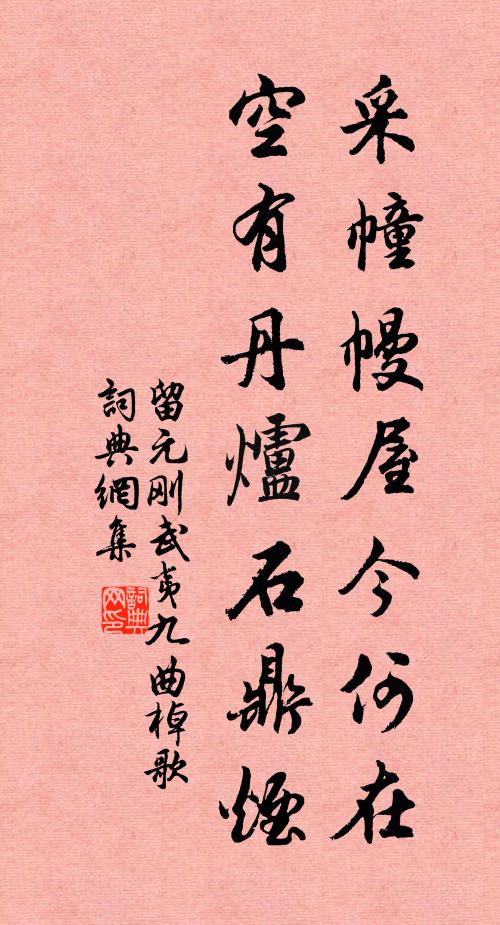 采幢幔屋今何在
空有丹爐石鼎煙
留元刚武夷九曲棹歌
詞典網集
詞典网印